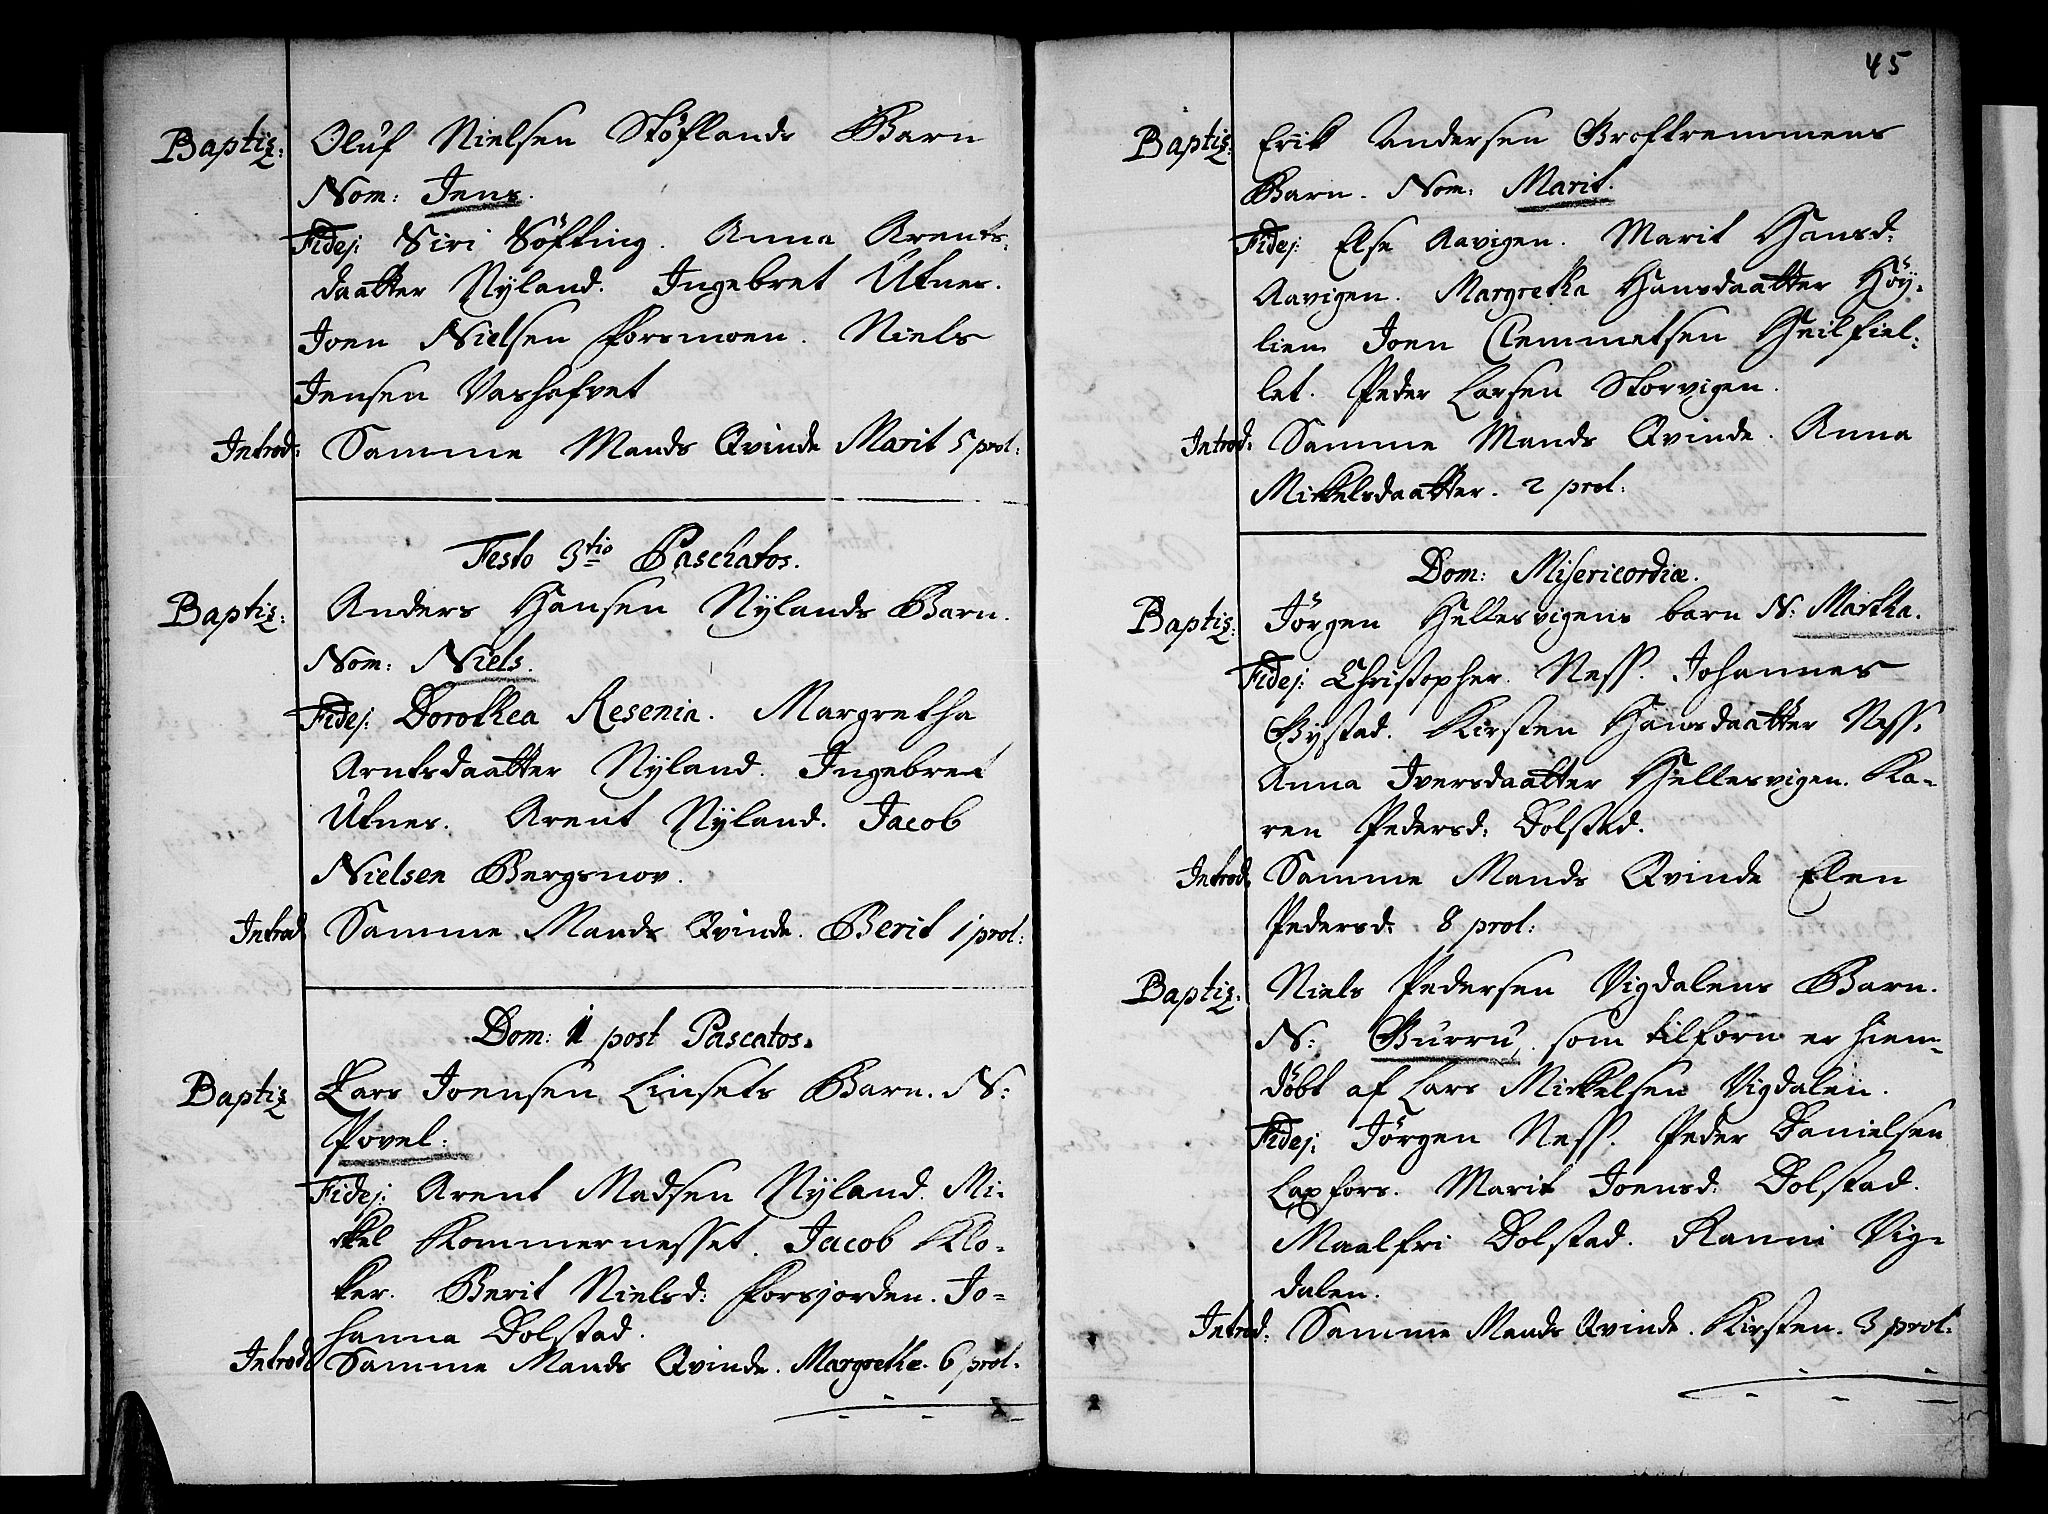 Baptiz: Oluf Nielsen Stöflands Barn
Nom: Jens.
Fidej: Siri Söfting. Anna Arents-
daatter Nyland. Ingebret Utnes.
Joen Nielsen Forsmoen. Niels
Jensen Vashafvet
Introd: Samme Mands Qvinde Marit 5 prol:
Festo 3tio Paschatos.
Baptiz: Anders Hansen Nylands Barn.
Nom: Niels.
Fidej: Dorothea Resenia. Margretha
Arntsdaatter Nyland. Ingebret
Utnes. Arent Nyland. Jacob
Nielsen Bergsnov.
Introd. Samme Mands Qvinde. Berit 1 prol:
Dom: 1 post Pascatos.
Baptiz Lars Joensen Linsets Barn. N:
Povel.
Fidej: Arent Madsen Nyland. Mi-
ckel Kommernesset. Jacob Klo-
ker. Berit Nielsd: Forsjorden. Jo-
hanna Dolstad.
Introd. Samme Mands Qvinde. Margrethe. 6 prol.
45
Baptiz: Erik Andersen Groftremmens
Barn. Nom: Marit.
Fidej: Else Aavigen. Marit Hansd:
Aavigen. Margretha Hansdaatter Höy-
lien Joen Clemmetsen Heilfiel-
let. Peder Larsen Storvigen.
Introd: Samme Mands Qvinde. Anna
Mickelsdaatter. 2 prol:
Dom: Misericordiæ.
Baptiz: Jörgen Hellesvigens barn N: Martha.
Fidej: Christopher Ness. Johannes
Bystad. Kirsten Hansdaatter Ness.
Anna Iversdaatter Hellesvigen. Ka-
ren Pedersd: Dolstad.
Introd. Samme Mands Qvinde Elen
Pedersd: 8 prol:
Baptiz: Niels Pedersen Vigdalens Barn.
N: Gurru, som tilforn er hiem-
döbt af Lars Mickelsen Vigdalen.
Fidej: Jörgen Ness. Peder Danielsen
Laxfors. Marit Joensd: Dolstad.
Maalfri Dolstad. Ranni Vig-
dalen.
Introd: Samme Mands Qvinde. Kirsten. 3 prol.